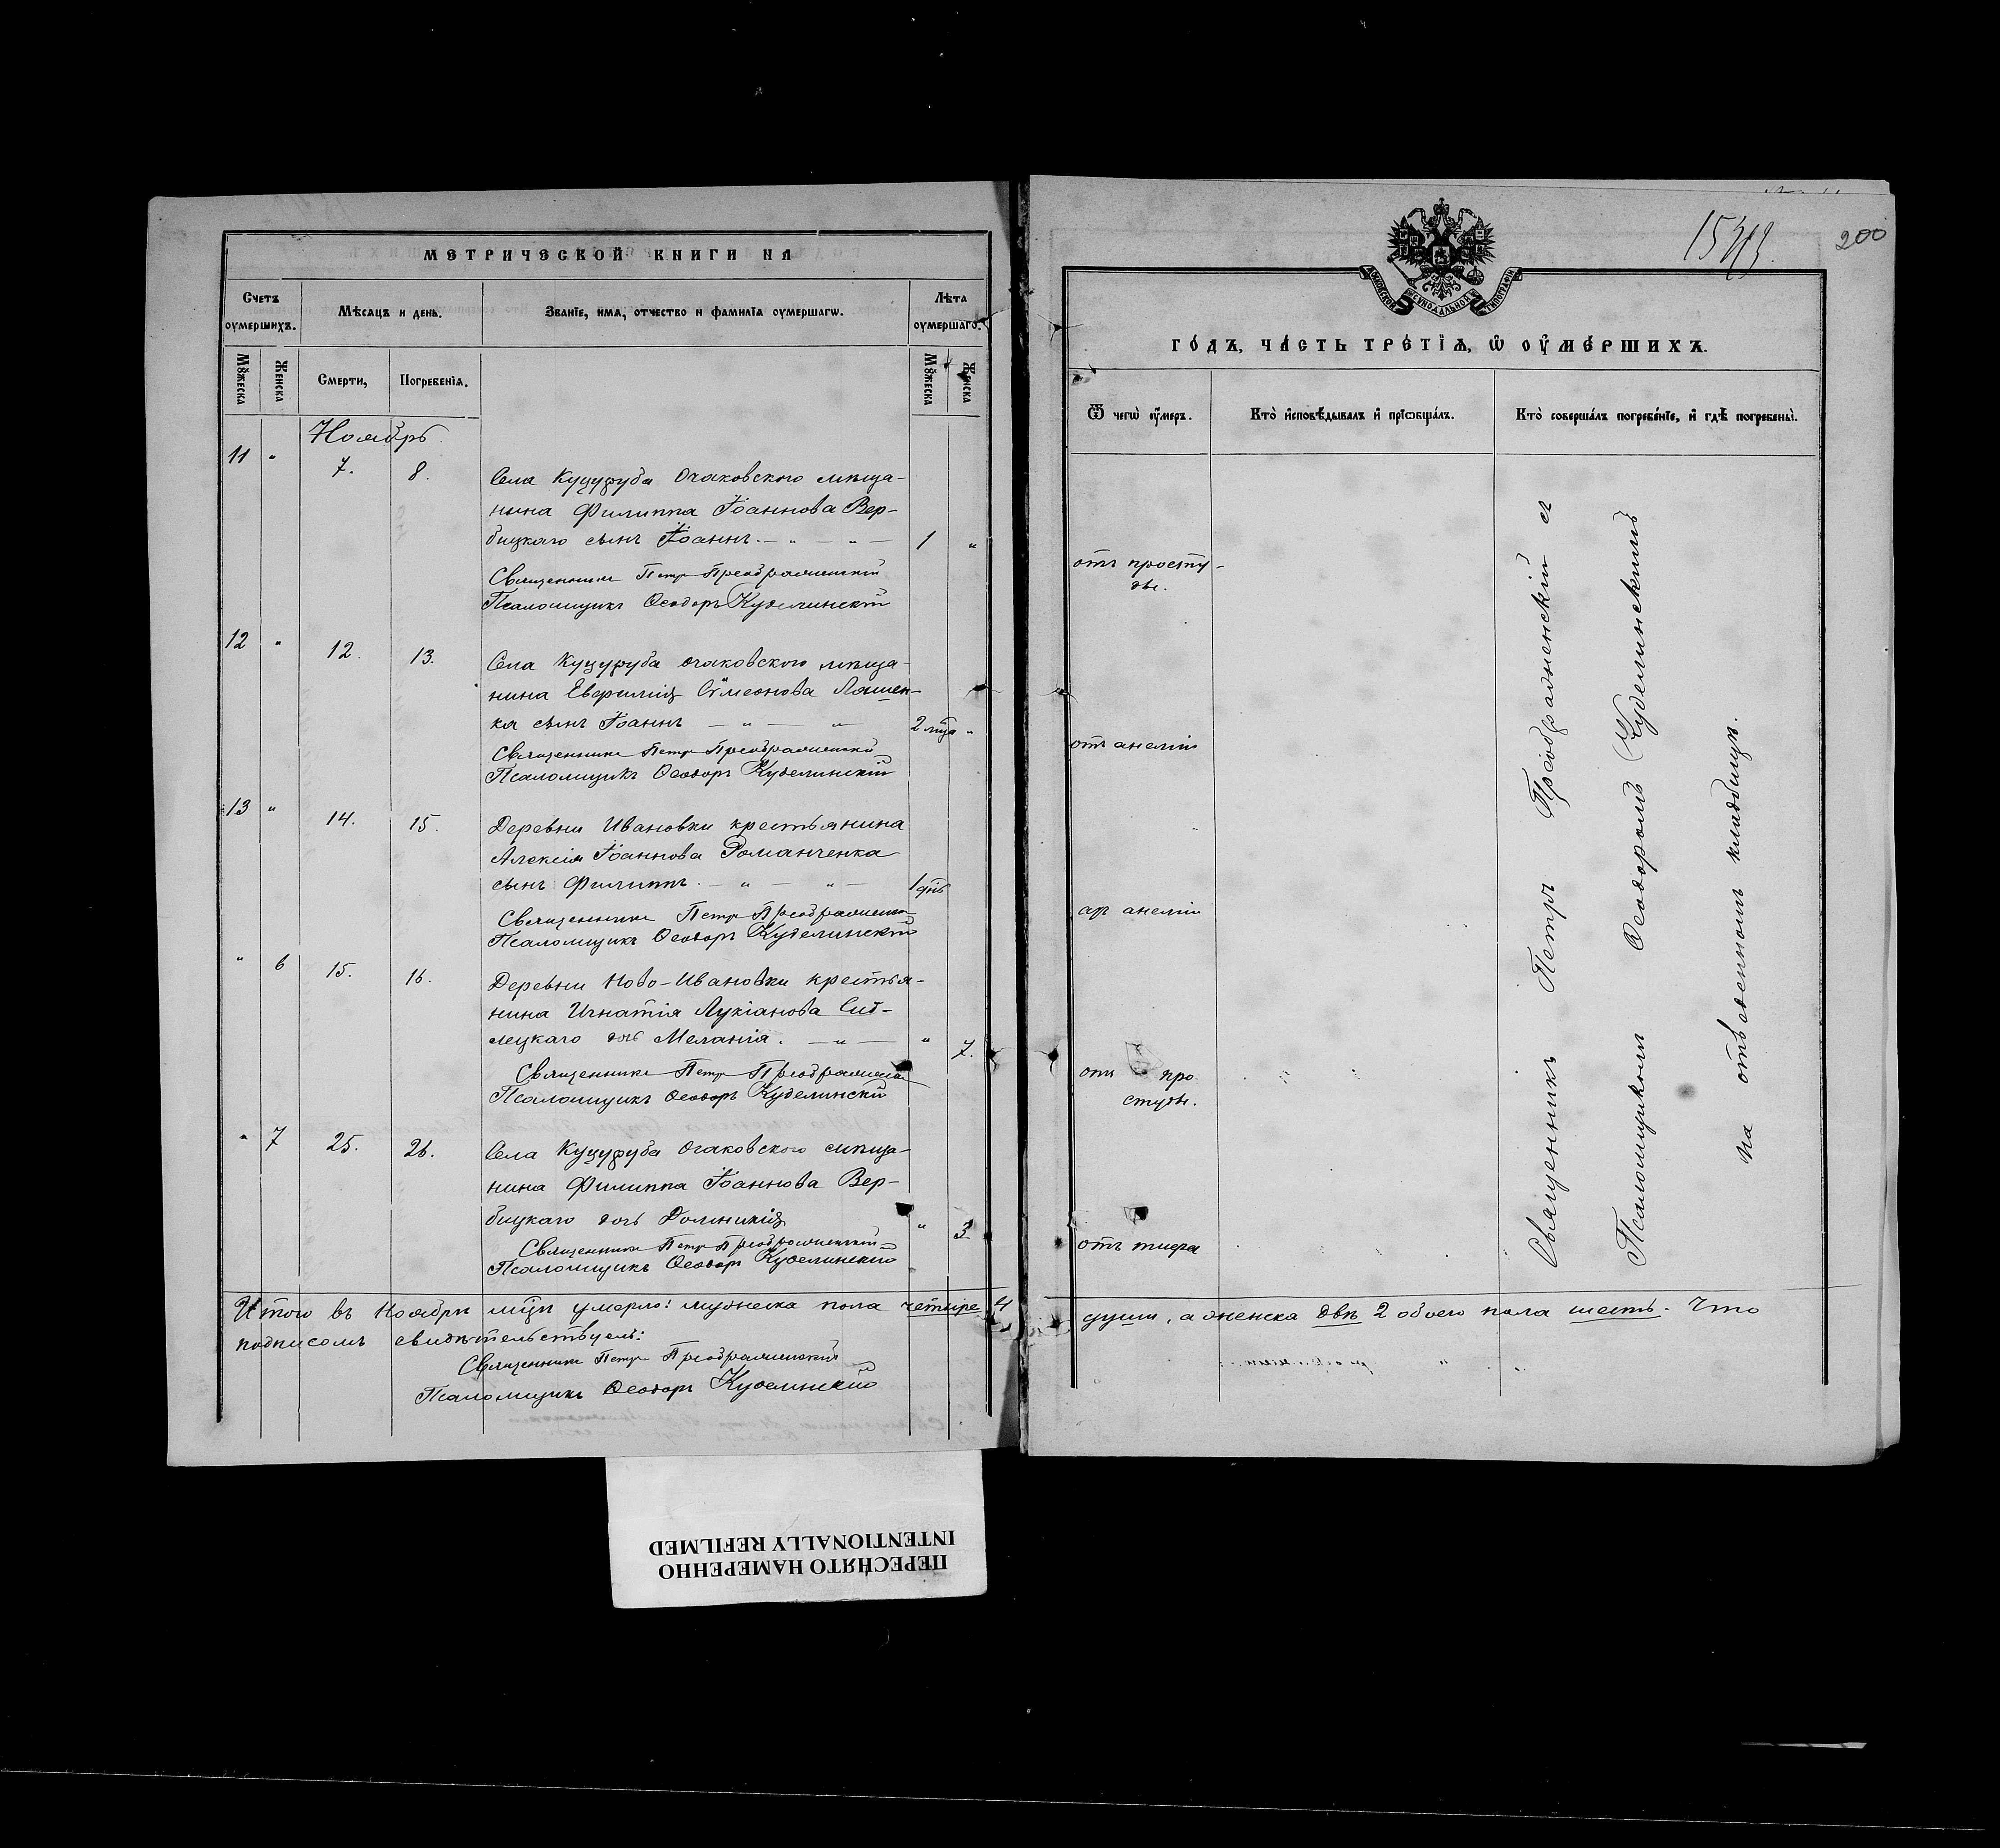 МЕТРИЧЕСКОЙ КНИГИ НА
Счетъ оумершихъ.
Мѣсяцъ и день.
Званіе, имя, отчество и фамилія оумершагѡ.
Лѣта оумершагѡ.
Мꙋжеска
Женска
Смерти,
Погребенія.
Мꙋжеска
Женска
Ноябрь
11 " 7. 8. Села Куцуруба Очаковского мѣща-
нина Филиппа Іоаннова Вер-
бицкаго сынъ Іоаннъ. — " — " — 1 "
Священникъ Петръ Преображенскій
Псаломщикъ Ѳеодоръ Куделинскій
12 " 12. 13. Села Куцуруба очаковского мѣща-
нина Сѵмеонова Ляшен-
ка сынъ Іоаннъ — " — " 2 мца "
Священникъ Петръ Преображенскій
Псаломщикъ Ѳеодоръ Куделинскій
13 " 14. 15. Деревни Ивановки крестьянина
Алексія Іоаннова Романченка
сынъ Филиппъ. — " — " — 1 днь
Священникъ Петръ Преображенскій
Псаломщикъ Ѳеодоръ Куделинскій
" 6 15. 16. Деревни Ново-Ивановки крестья-
нина Игнатія Лукіанова
лецкаго дочь Меланія. — " — " 7.
Священникъ Петръ Преображенскій
Псаломщикъ Ѳеодоръ Куделинскій
" 7 25. 26. Села Куцуруба Очаковского мѣща-
нина Филиппа Іоаннова Вер-
бицкаго дочь Домникія " 3
Священникъ Петръ Преображенскій
Псаломщикъ Ѳеодоръ Куделинскій
Итого въ Ноябрѣ мцѣ умерло: мужеска пола четыре 4
подписомъ свидѣтельствуемъ:
Священникъ Петръ Преображенскій
Псаломщикъ Ѳеодоръ Куделинскій
200
МОСКОВСКОЙ СѴНОДАЛЬНОЙ ТИПОГРАФІИ
ГОДЪ, ЧАСТЬ ТРЕТІЯ, Ѡ ОУМЕРШИХЪ.
Ѿ чегѡ оумеръ.
Кто исповѣдывалъ и пріѡбщалъ.
Кто совершалъ погребеніе, и гдѣ погребены.
отъ просту-
ды.
отъ
отъ про
студы.
отъ
Священникъ Петръ Преображенскій съ
Псаломщикомъ Ѳеодоромъ Куделинскимъ
на отведенномъ кладбищѣ.
души, а женска двѣ 2 обоего пола шесть. Что
ПЕРЕСНЯТО НАМЕРЕННО
INTENTIONALLY REFILMED